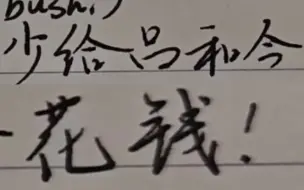 bush.)
少给吕和今
花钱!